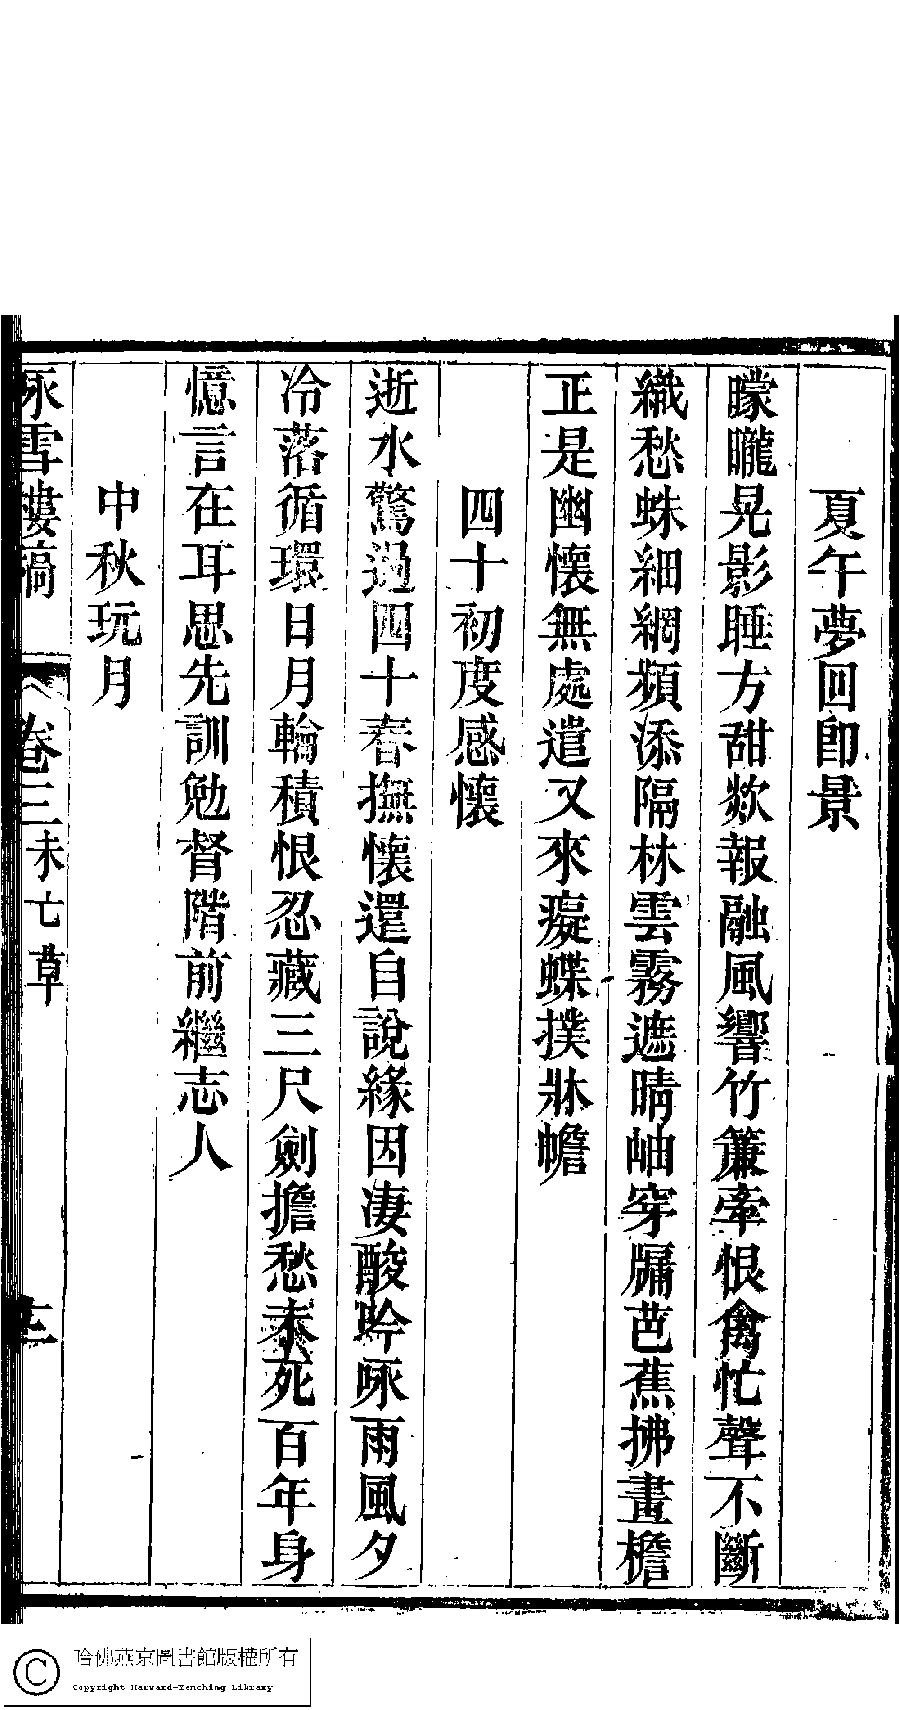 夏午夢回卽景
矇曨晃影睡方甜歘報融風響竹簾牽恨禽忙聲不斷
織愁蛛細網頻添隔林雲霧遮晴岫穿牖芭蕉拂畫檐
正是幽懷無處遣又來癡蝶撲牀幨
四十初度感懷
逝水驚過四十春撫懷還自說緣因淒酸吟咏雨風夕
冷落循環日月輪積恨忍藏三尺劍擔愁未死百年身
憶言在耳思先訓勉督階前繼志人
中秋玩月
咏雪樓稿
卷三未亡草
十二
哈佛燕京圖書館版權所有
Copyright Harvard-Yenching Library